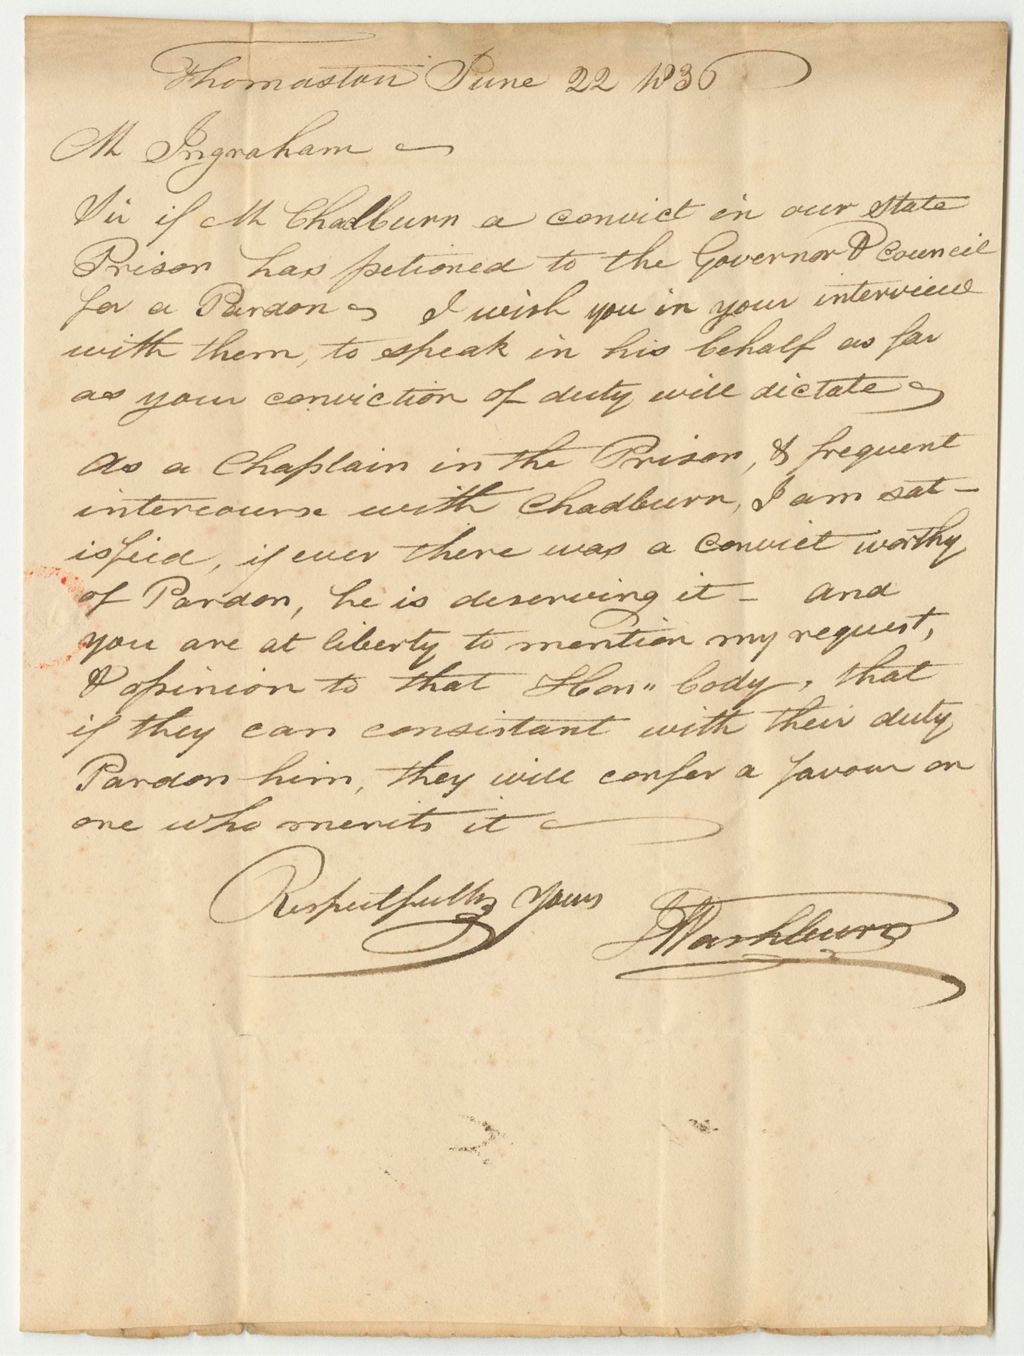 Thomaston June 22 1836
Mr Ingraham
Sir if Mr Chadburn a convict in our State
Prison has petioned to the Governor & Council
for a Pardon I wish you in your interview
with them, to speak in his behalf as far
as your conviction of duty will dictate
As a Chaplain in the Prison, & frequent
intercourse with Chadburn, I am sat-
isfied, if ever there was a convict worthy
of Pardon, he is deserving it - And
you are at liberty to mention my request,
& opinion to that Hon" body, that
if they can consistant with their duty
Pardon him, they will confer a favour on
one who merits it
Respectfully Yours
J Washburn